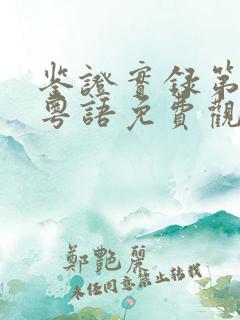 鉴證實録第
粵語免費觀
鄭艷麗
未经同意禁止转载